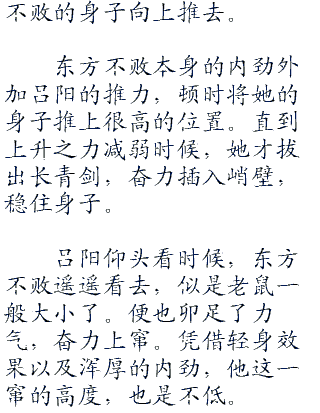 不败的身子向上推去。
东方不败本身的内劲外
加吕阳的推力，顿时将她的
身子推上很高的位置。直到
上升之力减弱时候，她才拔
出长青剑，奋力插入峭壁，
稳住身子。
吕阳仰头看时候，东方
不败遥遥看去，似是老鼠一
般大小了。便也卯足了力
气，奋力上窜。凭借轻身效
果以及浑厚的内劲，他这一
窜的高度，也是不低。